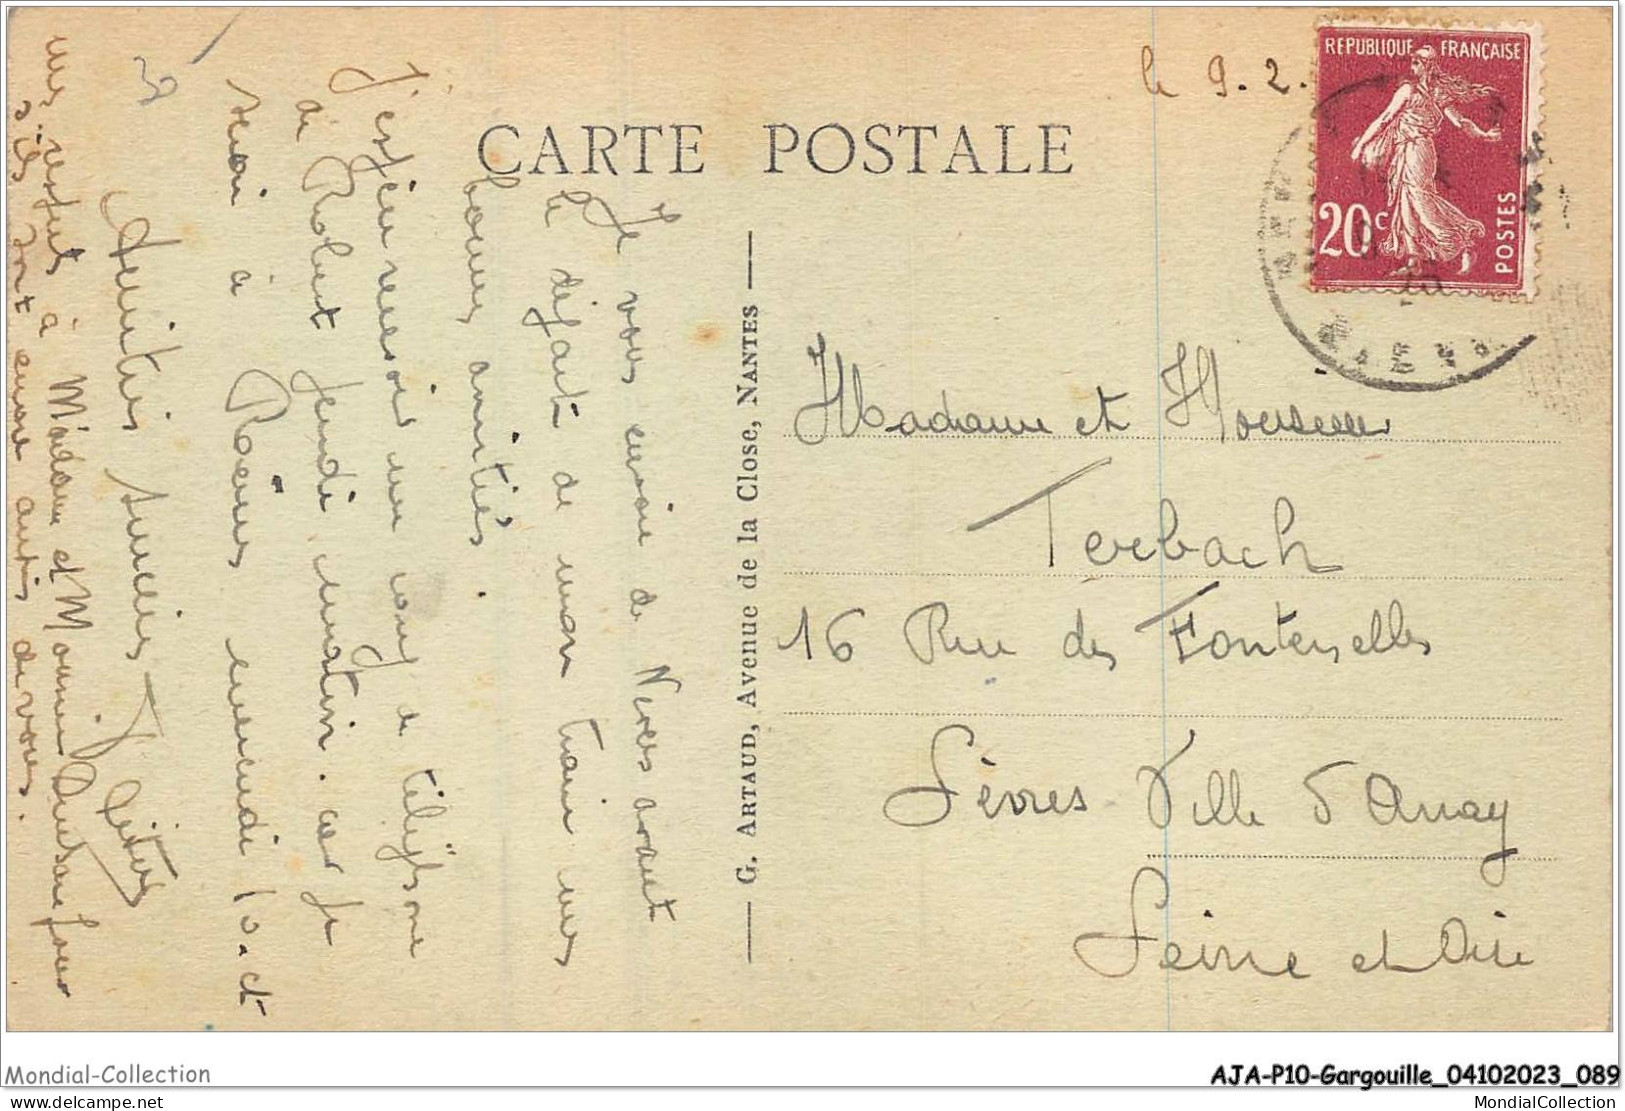 le 9.2.
REPUBLIQUE FRANÇAISE
20c
POSTES
CARTE POSTALE
Je vous envoie de Nevers avant
le départ de mon train mes
bonnes amitiés.
J'espère recevoir un coup de téléphone
de Robert jeudi matin. car je
serai à Reims mercredi 10. et
Amitiés
mes respects à Madame et Monsieur
s'ils sont encore auprès de vous.
G. ARTAUD, Avenue de la Close, NANTES
Madame et Monsieur
Terbach
16 Rue des Fontenelles
Sèvres Ville d'Avray
Seine et Oise
Mondial-Collection
AJA-P10-Gargouille_04102023_089
delcampe.net
MondialCollection